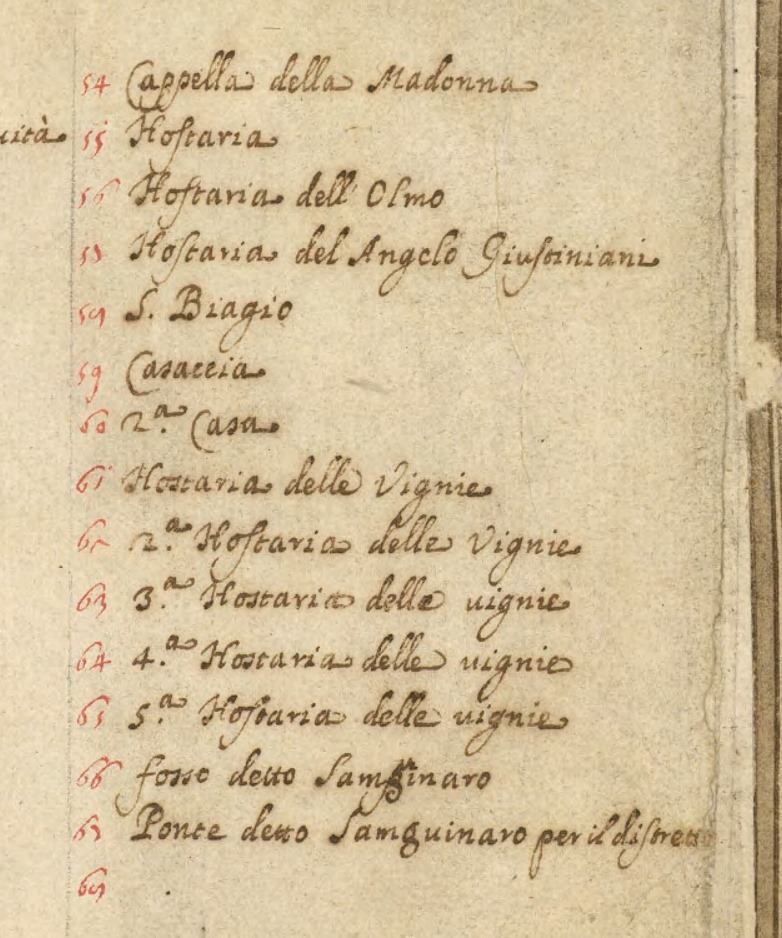 54 Cappella della Madonna
55 Hostaria
56 Hostaria dell' Olmo
57 Hostaria del Angelo Giustiniani
58 S. Biagio
59 Casaccia
60 2.ª Casa
61 Hostaria delle Vignie
62 2.ª Hostaria delle Vignie
63 3.ª Hostaria delle vignie
64 4.ª Hostaria delle uignie
65 5.ª Hostaria delle uignie
66 fosso detto Samginaro
67 Ponte detto Samguinaro per il distretto
68